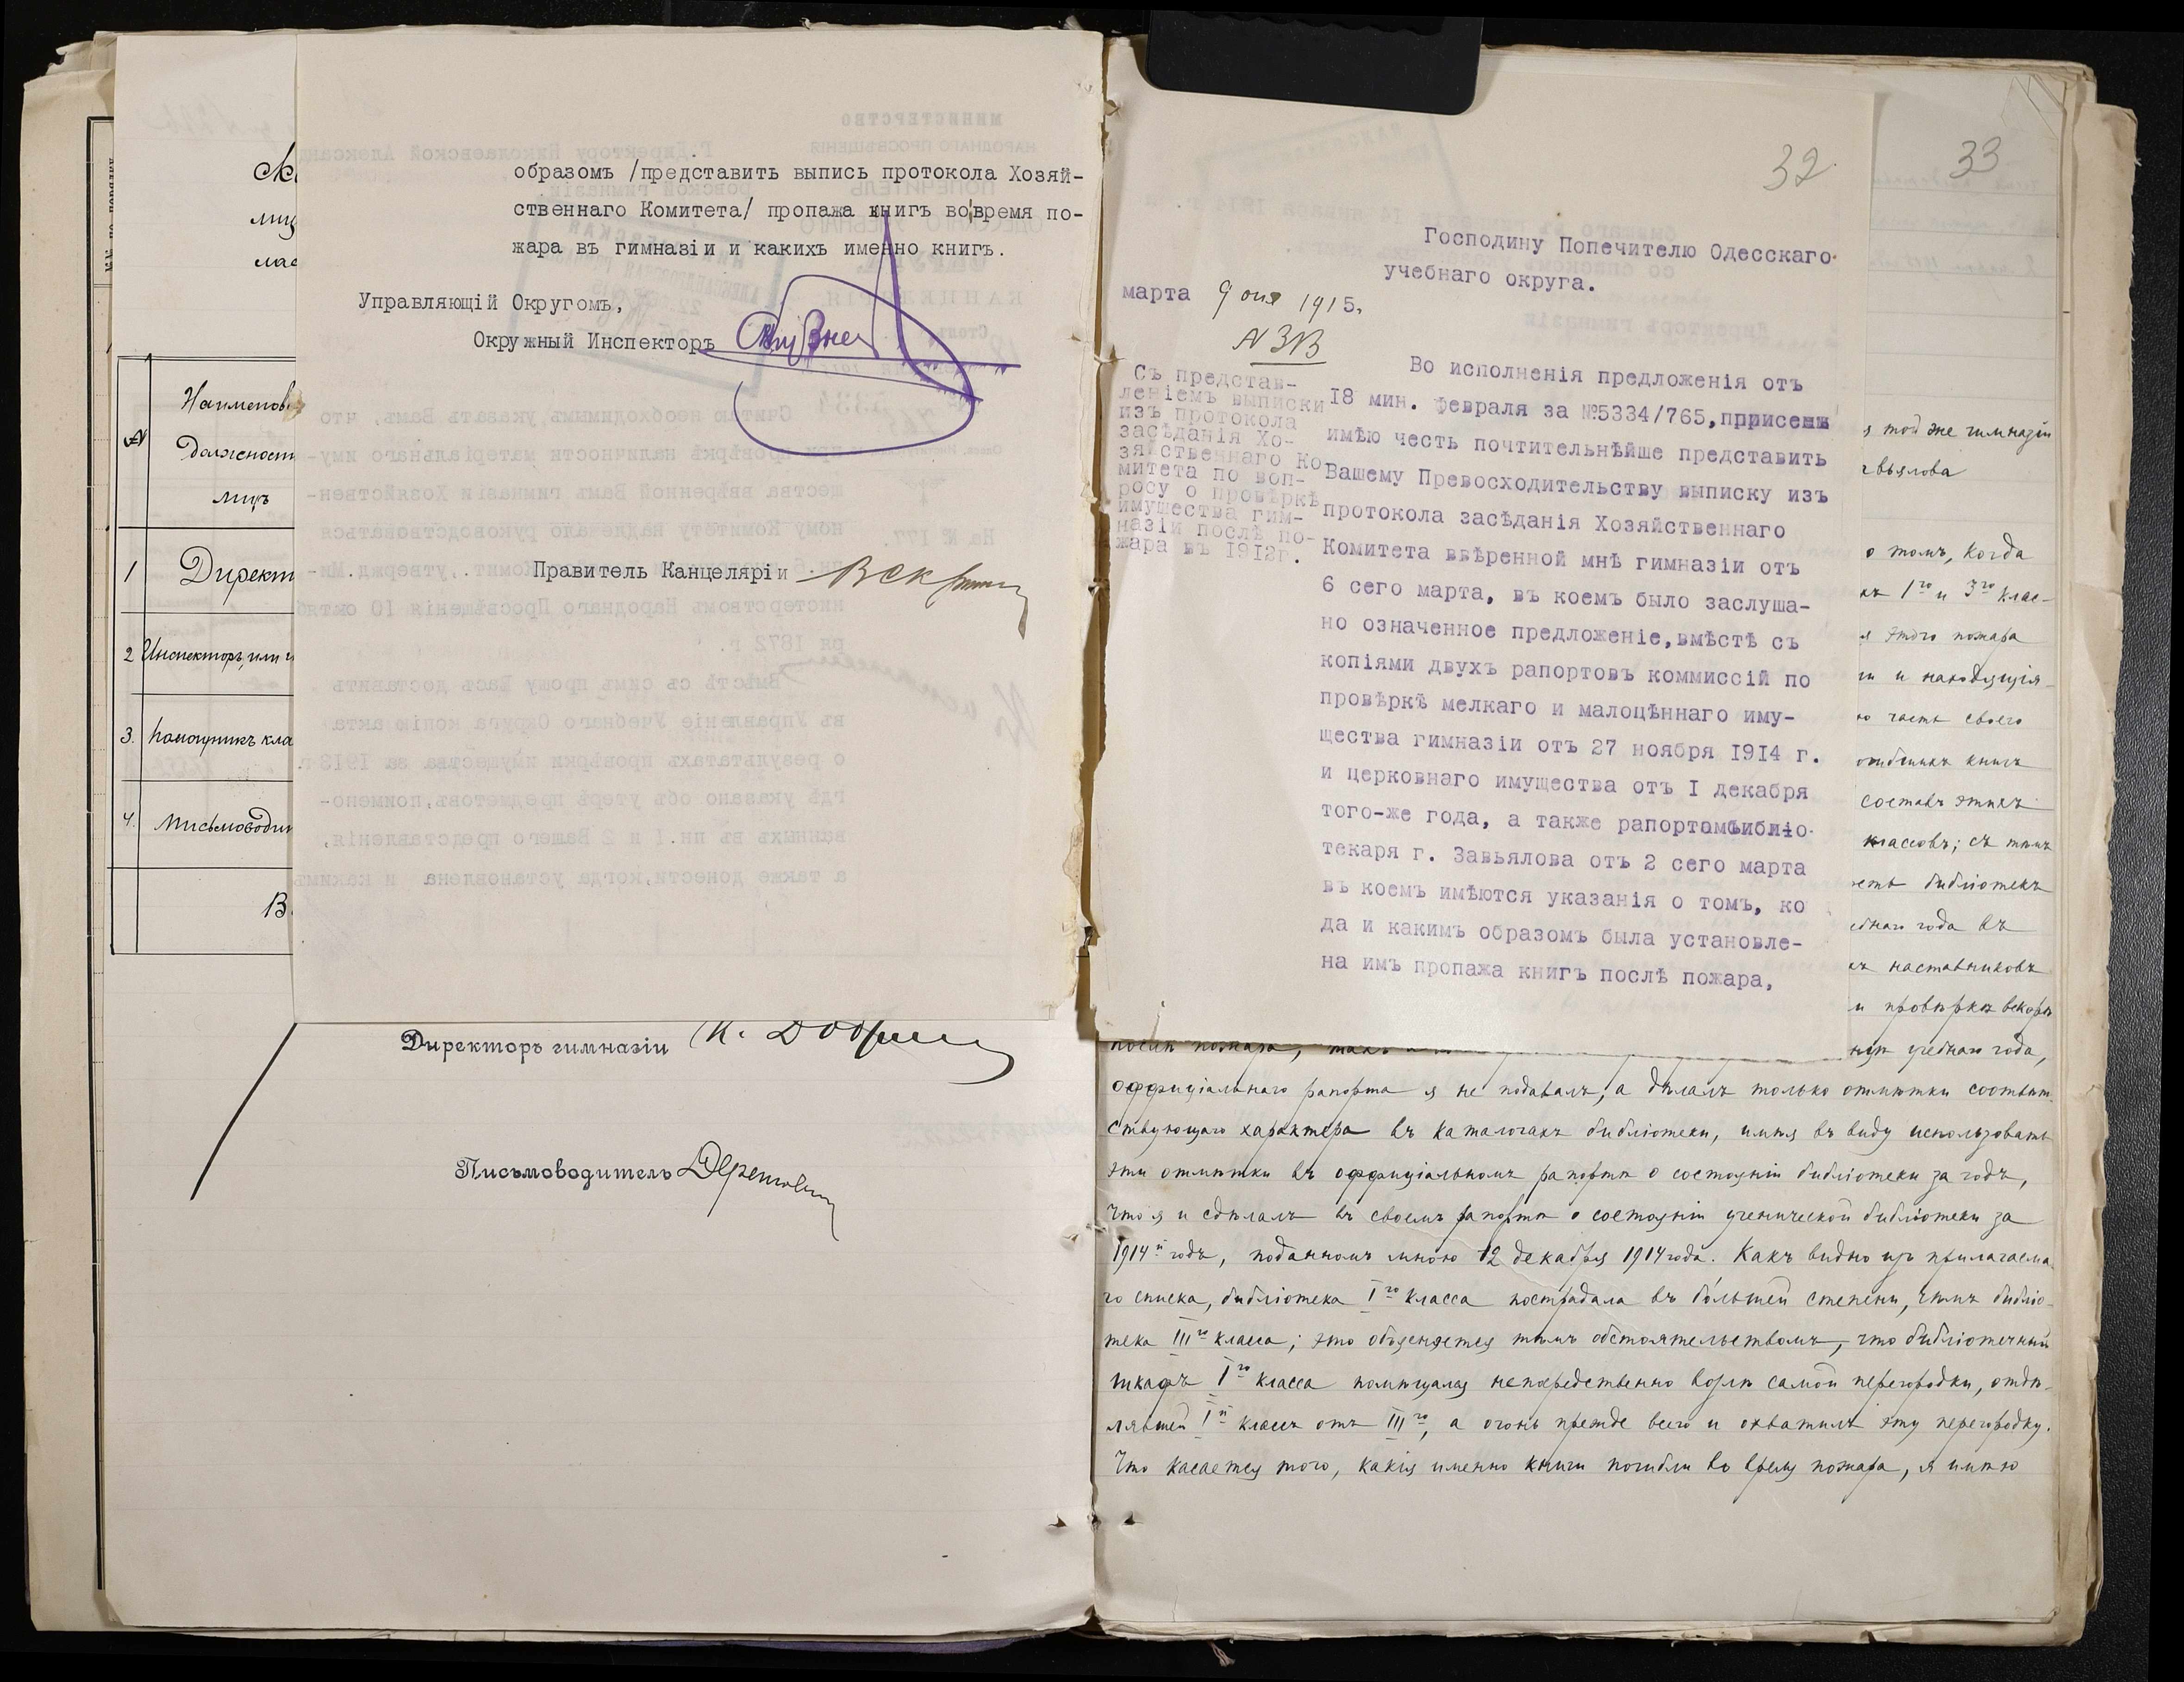 образомъ /представить выпись протокола Хозяй-
ственнаго Комитета/ пропажа книгъ во время по-
жара въ гимназіи и какихъ именно книгъ.
Управляющій Округомъ,
Окружный Инспекторъ
Правитель Канцеляріи
№
Наименов
должност
лицъ
1 Директ
2 Инспекторъ, или и
3. Помощникъ кла
4. Письмоводи
Директоръ гимназіи
Письмоводитель
32
33
Господину Попечителю Одесскаго
учебнаго округа.
марта 9 дня 1915.
N 313
Съ представ-
леніемъ выписки
изъ протокола
засѣданія Хо-
зяйственнаго Ко
митета по воп-
росу о провѣркѣ
имущества гим-
назіи послѣ по-
жара въ 1912г.
Во исполненія предложенія отъ
18 мин. февраля за №5334/765,
имѣю честь почтительнѣйше представить
Вашему Превосходительству выписку изъ
протокола засѣданія Хозяйственнаго
Комитета ввѣренной мнѣ гимназіи отъ
6 сего марта, въ коемъ было заслуша-
но означенное предложеніе,вмѣстѣ съ
копіями двухъ рапортовъ коммиссій по
провѣркѣ мелкаго и малоцѣннаго иму-
щества гимназіи отъ 27 ноября 1914 г.
и церковнаго имущества отъ I декабря
того-же года, а также рапортомъ библіо-
текаря г. Завьялова отъ 2 сего марта
въ коемъ имѣются указанія о томъ, ко
да и какимъ образомъ была установле-
на имъ пропажа книгъ послѣ пожара,
той же гимназіи
вьялова
о томъ, когда
1го и 3го клас-
этого пожара
и находящія
часть своего
книгъ
составъ этихъ
классовъ; съ тѣмъ
библіотекъ
года въ
наставниковъ
провѣркѣ вскорѣ
учебнаго года,
послѣ пожара,
оффиціальнаго рапорта я не подавалъ, а дѣлалъ только отмѣтки соотвѣт
ствующаго характера въ каталогахъ библіотеки, имѣя въ виду использовать
эти отмѣтки въ оффиціальномъ рапортѣ о состояніи библіотеки за годъ,
что я и сдѣлалъ въ своемъ рапортѣ о состояніи ученической библіотеки за
1914й годъ, поданномъ мною 12 декабря 1914 года. Какъ видно изъ прилагаема
го списка, библіотека Iго класса пострадала въ большей степени, чѣмъ библіо-
тека IIIго класса; это объясняется тѣмъ обстоятельствомъ, что библіотечный
шкафъ Iго класса помѣщался непосредственно возлѣ самой перегородки, отдѣ-
лявшей Iй классъ отъ IIIго, а огонь прежде всего и охватилъ эту перегородку.
Что касается того, какія именно книги погибли во время пожара, я имѣю